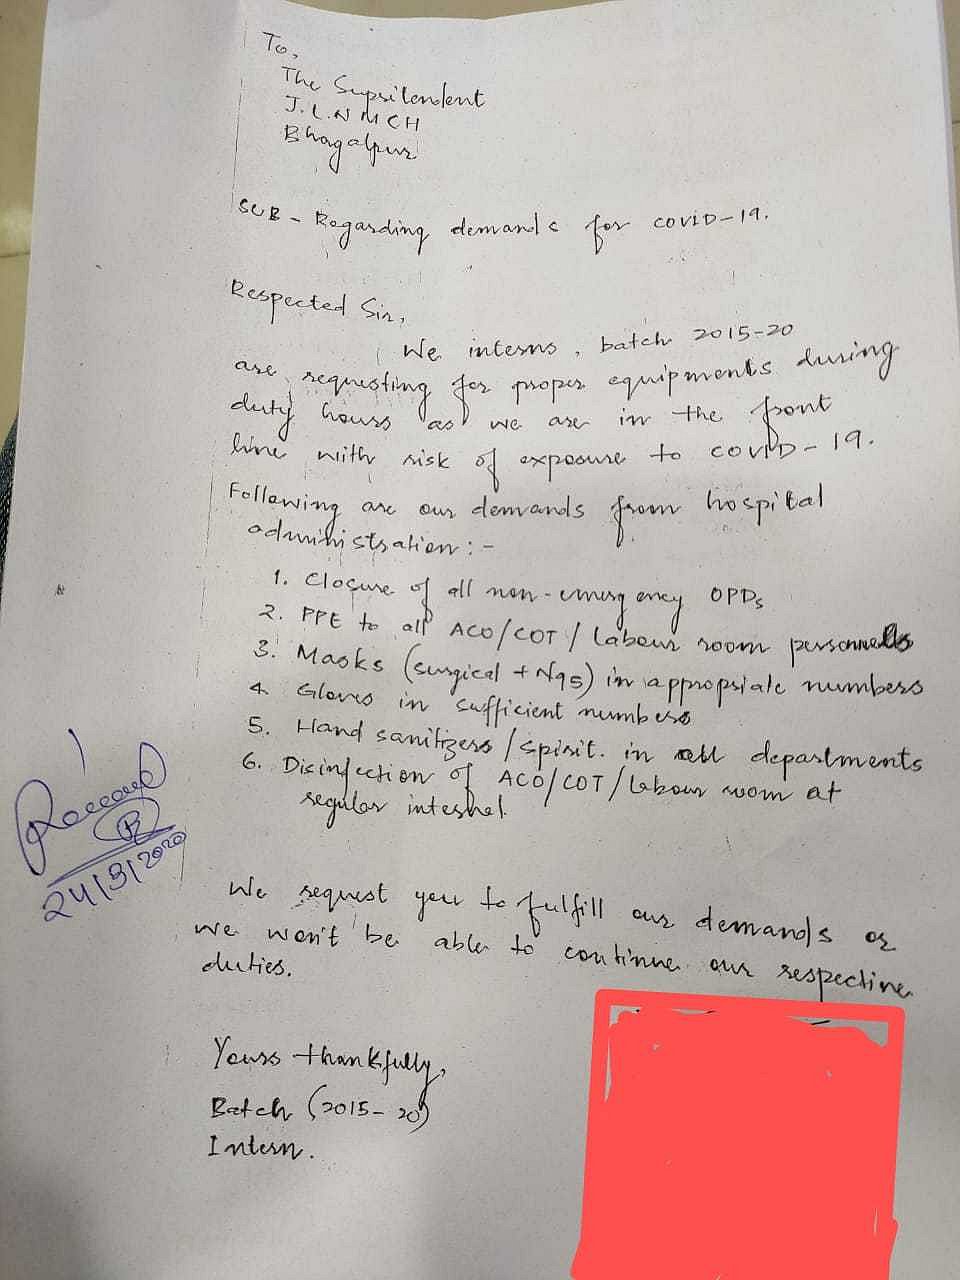 To,
The Supritendent
J.L.N MCH
Bhagalpur
SUB - Regarding demands for COVID-19.
Respected Sir,
We interns, batch 2015-20
are requesting for proper equipments during
duty hours as we are in the front
line with risk of exposure to COVID-19.
Following are our demands from hospital
administration:-
1. Closure of all non-emergency OPDs
2. PPE to all ACO/COT/Labour room personnels
3. Masks (surgical + N95) in appropriate numbers
4. Gloves in sufficient numbers
5. Hand sanitizers/spirit. in all departments
6. Disinfection of ACO/COT/Labour room at
regular
24/3/2020
We request you to fulfill our demands or
we won't be able to continue our respective
duties.
Yours thankfully,
Batch (2015-20)
Intern.